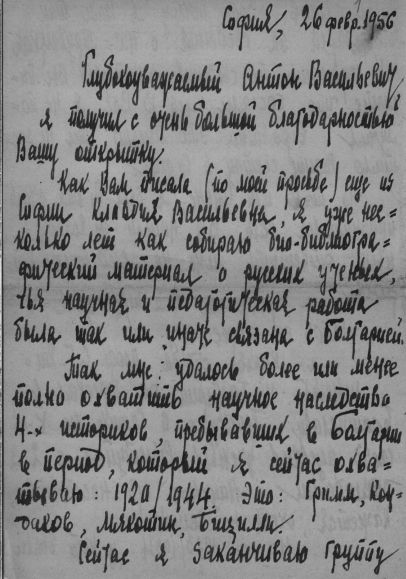 София, 26 февр. 1956
Глубокоуважаемый Антон Васильевич,
я получил с очень большой благодарностью
Вашу открытку.
Как Вам писала (по моей просьбе) еще из
Софии Клавдия Васильевна, я уже нес=
колько лет как собираю био-библиогра=
фический материал о русских ученых,
чья научная и педагогическая работа
была так или иначе связана с Болгарией.
Так мне удалось более или менее
полно охватить научное наследство
4-х историков, пребывавших в Болгарии
в период, который я сейчас охва=
тываю: 1920/1944. Это: Гримм, Кон=
даков, Мякотин, Бицилли.
Сейчас я заканчиваю группу